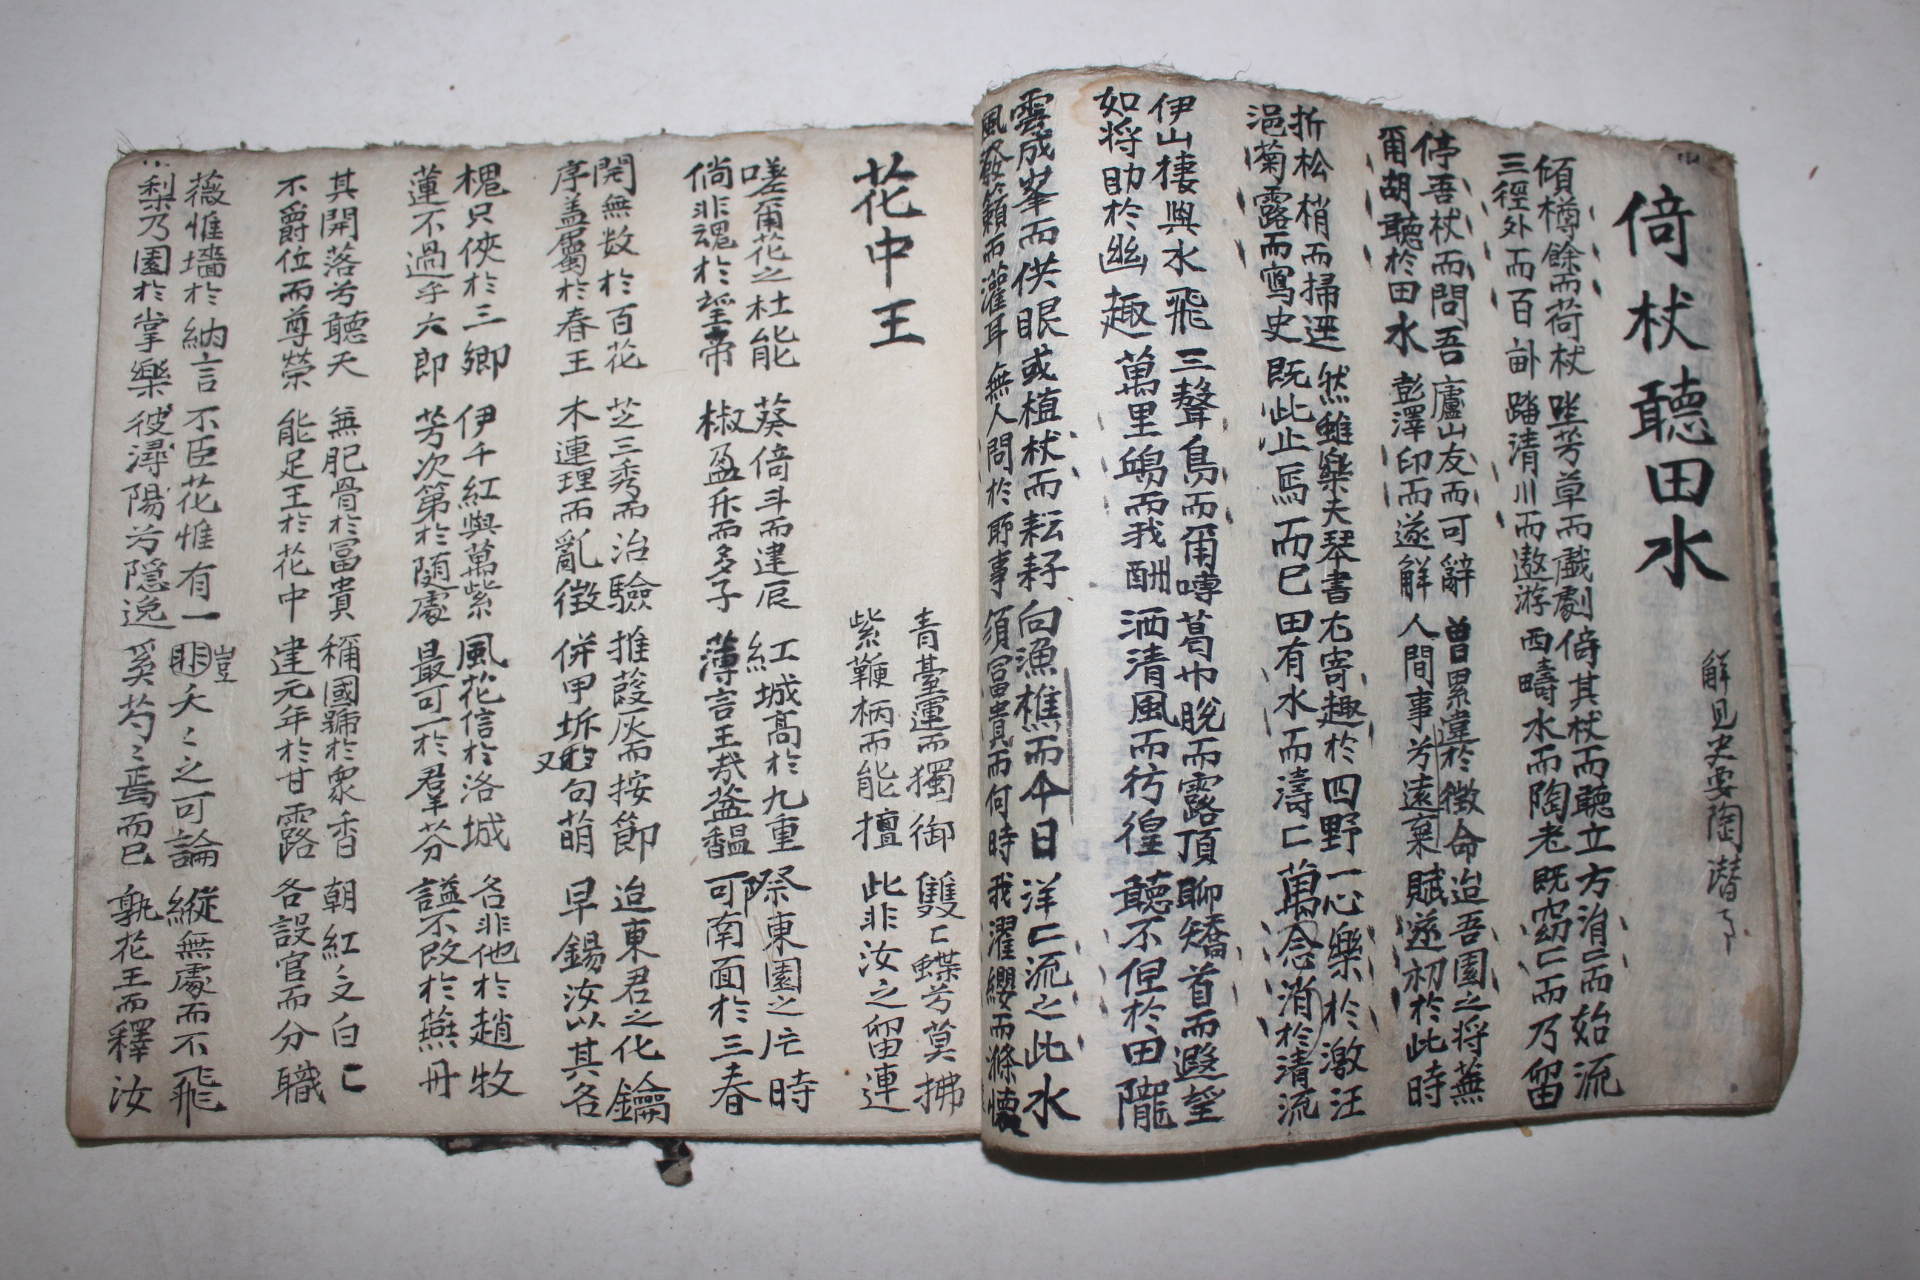 倚杖聽田水
解見史要陶潜
傾樽餘而荷杖 坐芳草而戲劇 倚其杖而聽立 方涓〻而始流
三徑外而百畝 踏清川而遨游 西疇水而陶老 既窈〻而乃留
停吾杖而問吾 廬山友而可辭 曾累違於徵命 迨吾園之将蕪
爾胡聽於田水 彭澤印而遂解 人間事兮遠棄 賦遂初於此時
折松梢而掃逕 然雖樂夫琴書 右寄趣於四野 一心樂於激汪
浥菊露而寫史 既此止焉而已 田有水而濤〻 萬念消於清流
伊山棲與水飛 三聲鳥而爾啼 葛巾脫而露頂 聊矯首而遐望
如将助於幽趣 萬里鴻而我酬 洒清風而彷徨 聽不倦於田隴
雲成峯而供眼 或植杖而耘耔 向漁樵而今日 洋〻流之此水
風發籟而灌耳 無人問於耶事 須冨貴而何時 我濯纓而滌懐
花中王
青臺運而獨御 雙〻蝶兮莫拂
紫鞭柄而能擅 此非汝之留連
嗟爾花之杜能 葵倚斗而建辰 紅城高於九重 祭東園之片時
倘非魂於望帝 椒盈升而多子 薄言王哉益馧 可南面於三春
開無数於百花 芝三秀而治驗 推葭灰而按節 迨東君之化鑰
序盖屬於春王 木連理而亂徵 併甲坼句萌 早錫汝以其名
槐只俠於三卿 伊千紅與萬紫 風花信於洛城 名非他於趙牧
蓮不過乎六郎 芳次第於随處 最可一於羣芬 謚不改於燕丹
其開落兮聽天 無肥骨於冨貴 稱國號於衆香 朝紅之白〻
不爵位而尊榮 能足王於花中 建元年於甘露 各設官而分職
薇惟墻於納言 不臣花惟有一 豈夭〻之可論 縱無處而不飛
梨乃園於掌樂 彼潯陽兮隱逸 奚芍〻焉而已 孰花王而釋汝